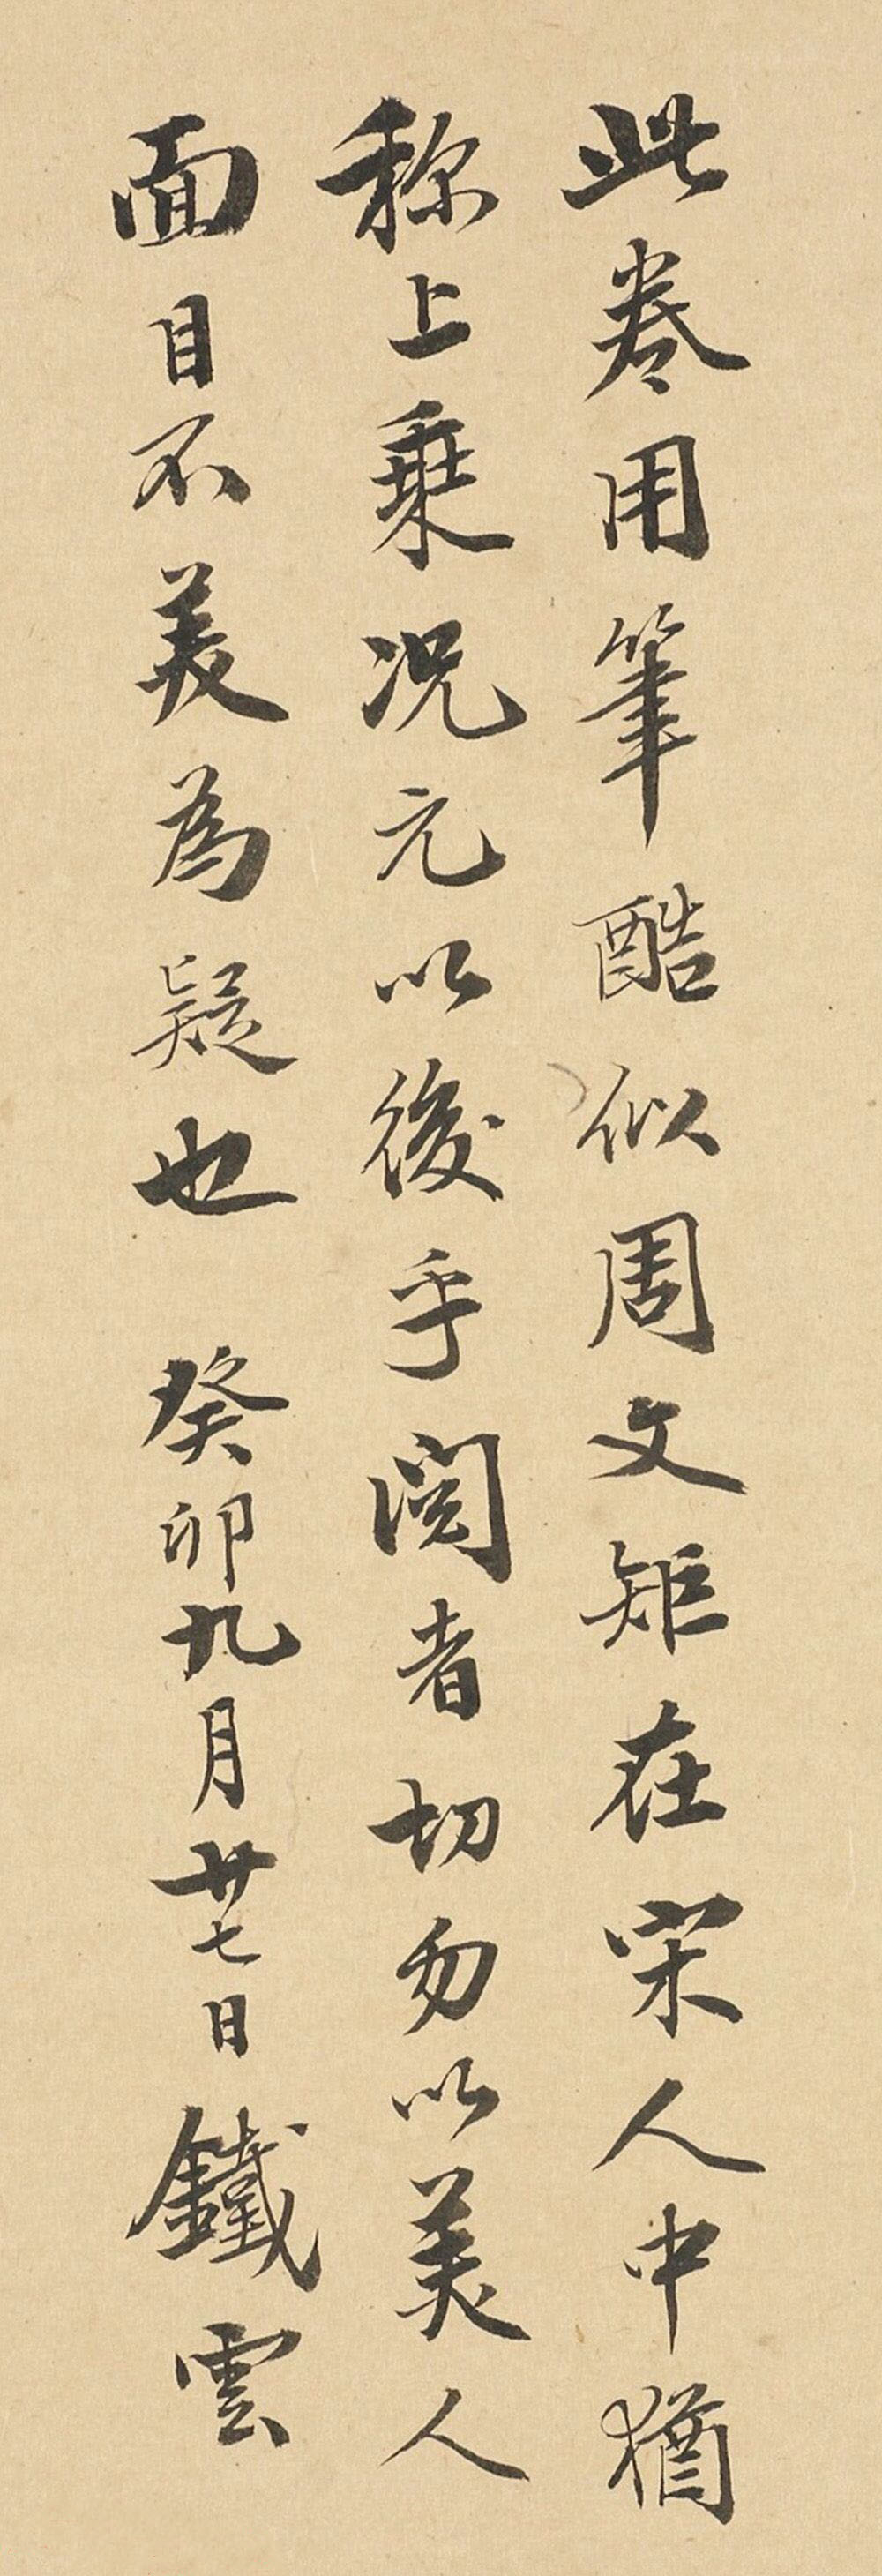 此卷用筆酷似周文矩在宋人中猶
称上乗况元以後乎閲者切勿以美人
面目不美為疑也 癸卯九月廿七日鐵雲